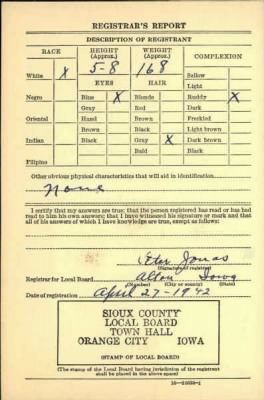 REGISTRAR'S REPORT
DESCRIPTION OF REGISTRANT
RACE HEIGHT (Approx.) WEIGHT (Approx.) COMPLEXION
White X 5-8 168 Sallow
EYES HAIR Light
Negro Blue X Blonde Ruddy X
Gray Red Dark
Oriental Hazel Brown Freckled
Brown Black Light brown
Indian Black Gray X Dark brown
Bald Black
Filipino
Other obvious physical characteristics that will aid in identification
None
I certify that my answers are true; that the person registered has read or has had
read to him his own answers; that I have witnessed his signature or mark and that
all of his answers of which I have knowledge are true, except as follows:
Jonas
(Signature of registrar)
Registrar for Local Board Alton Iowa
(Number) (City or county) (State)
Date of registration April 27-1942
SIOUX COUNTY
LOCAL BOARD
TOWN HALL
ORANGE CITY IOWA
(STAMP OF LOCAL BOARD)
(The stamp of the Local Board having jurisdiction of the registrant
shall be placed in the above space)